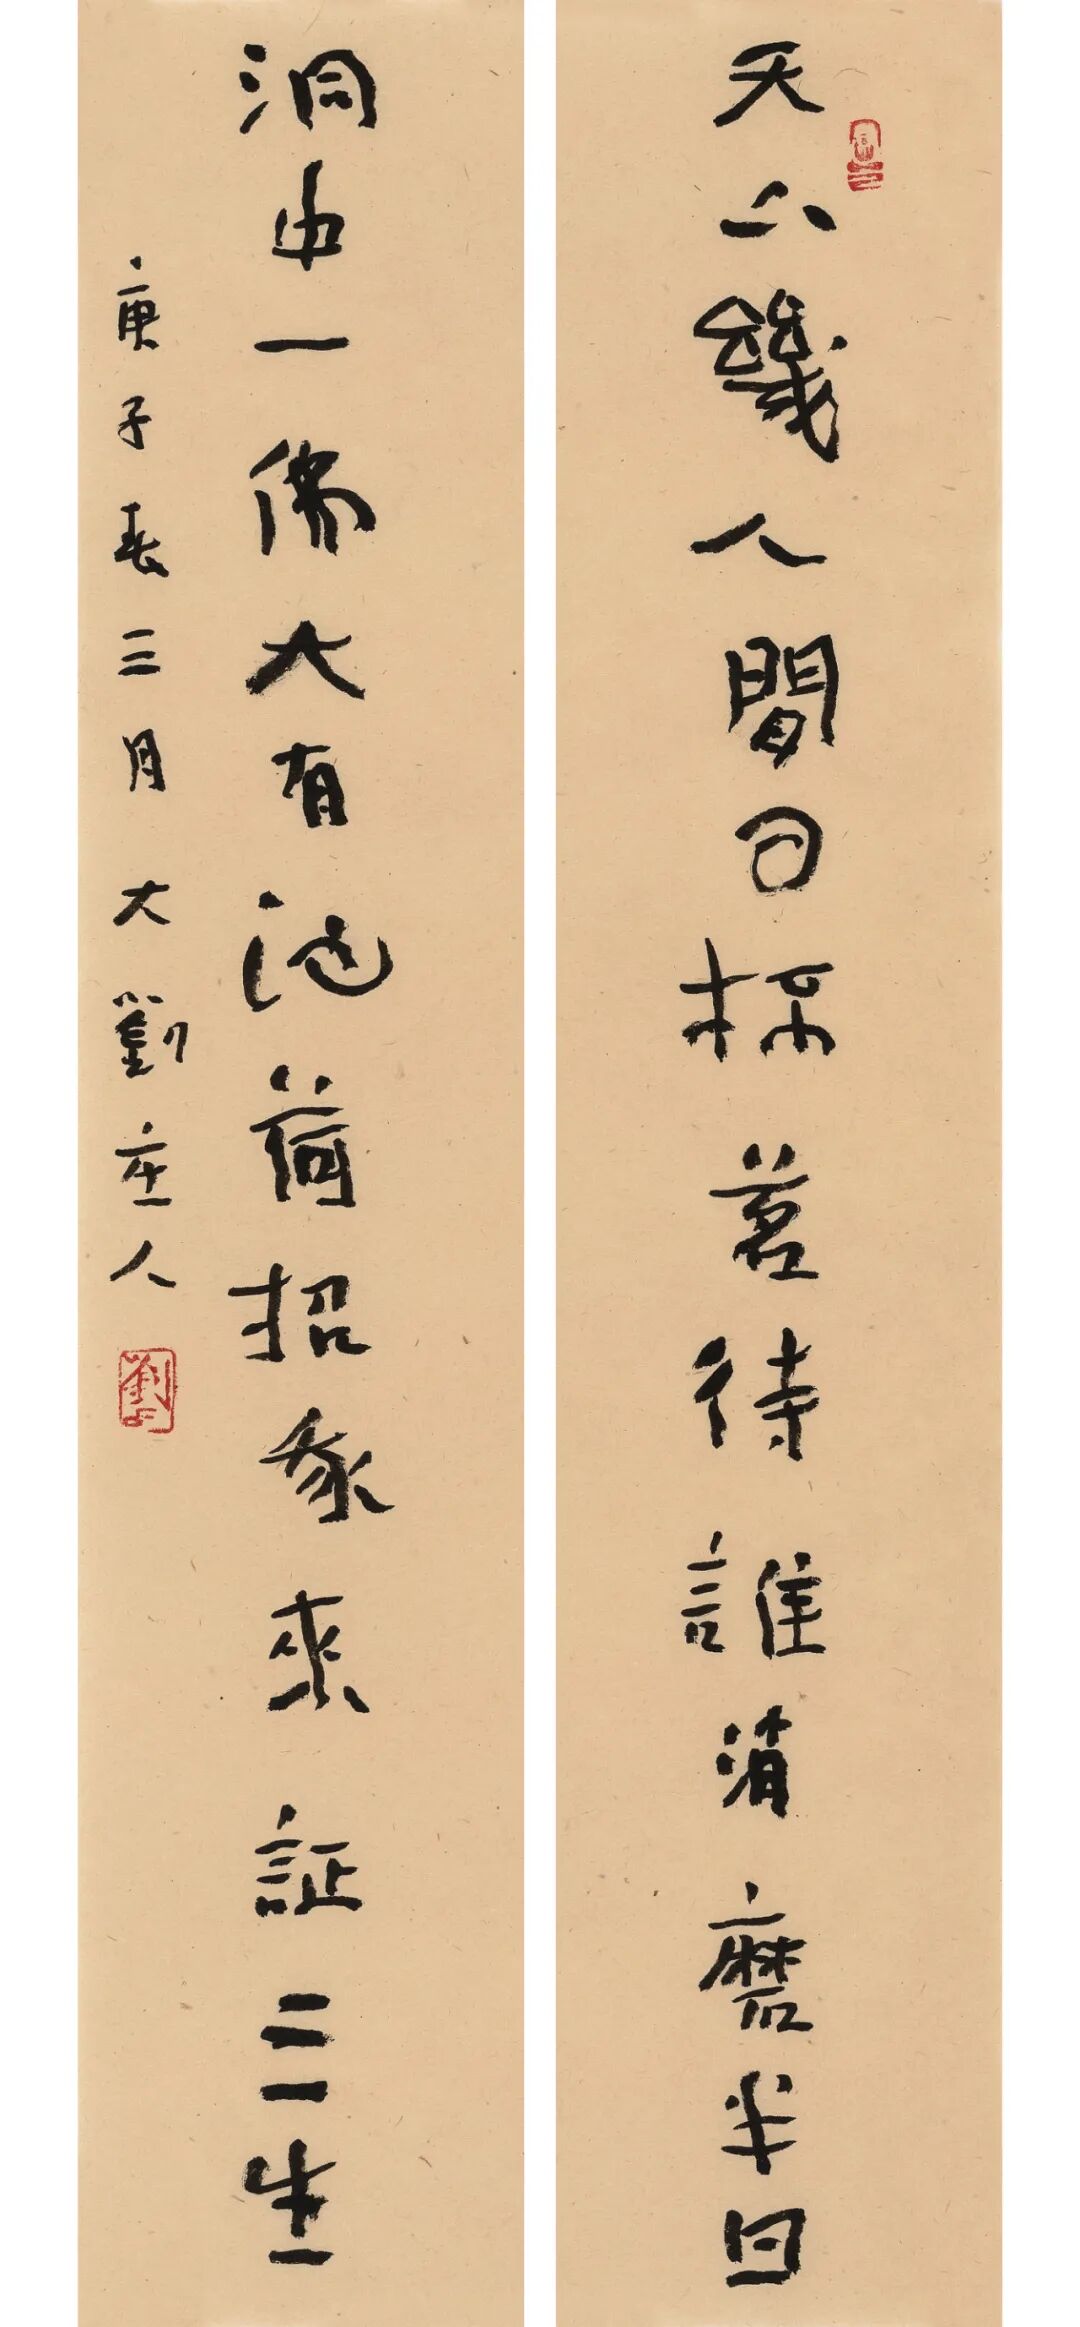 天下幾人閒問杯茗待誰消磨半日
洞中一佛大有池荷招我來証三生
庚子春三月大劉庄人